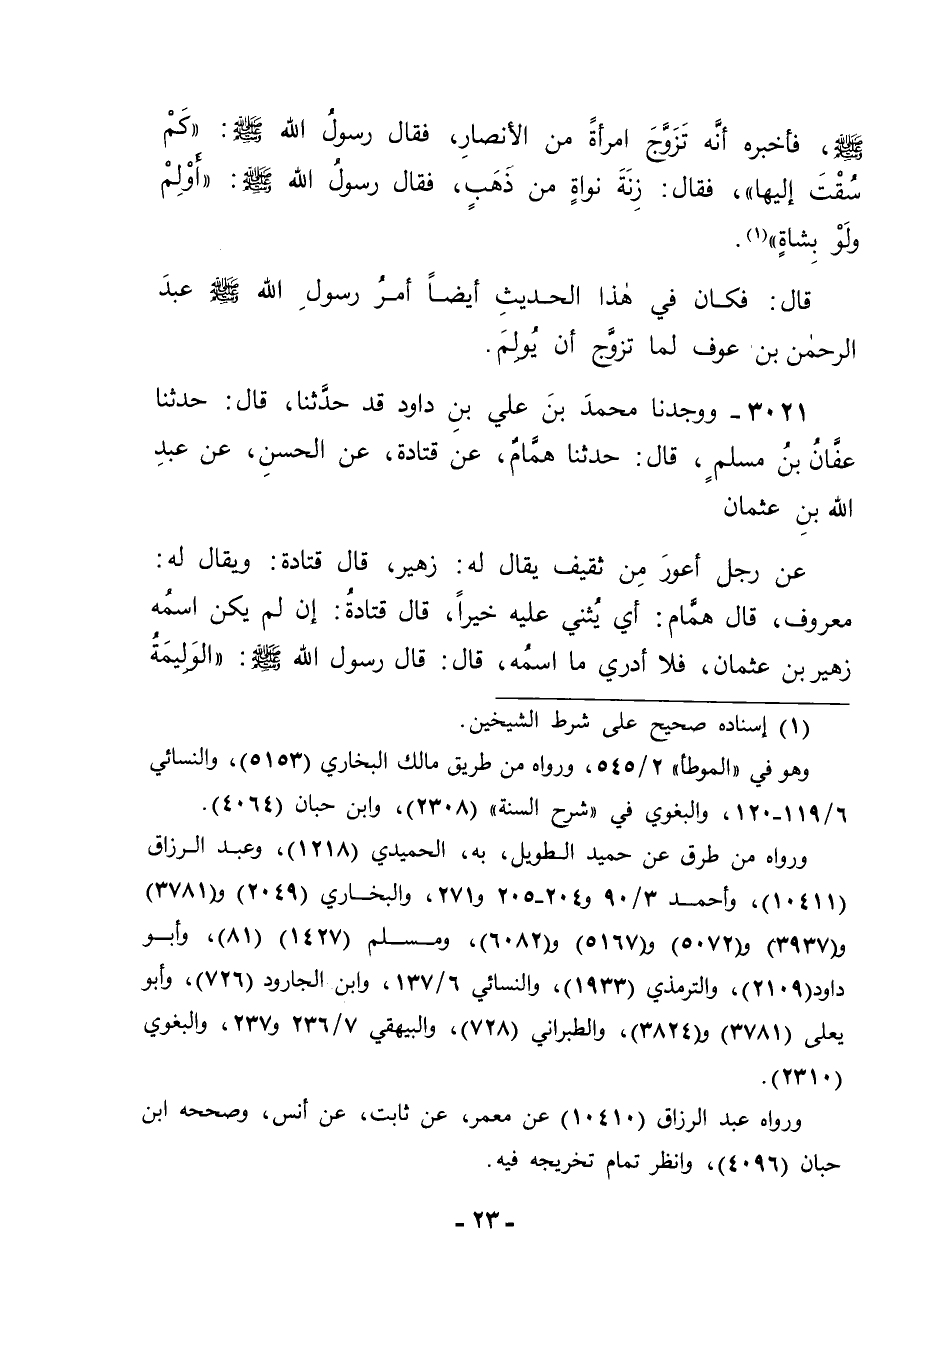 ﷺ، فأخبره أنَّه تَزَوَّجَ امرأةً من الأنصارِ، فقال رسولُ الله ﷺ: «كَمْ
سُقْتَ إليها»، فقال: زِنَةَ نواةٍ من ذَهَبٍ، فقال رسولُ الله ﷺ: «أَوْلِمْ
ولَوْ بِشاةٍ»(١).
قال: فكان في هٰذا الحديثِ أيضاً أمرُ رسولِ الله ﷺ عبدَ
الرحمٰن بن عوف لما تزوَّج أن يُولِمَ.
٣٠٢١ـ ووجدنا محمدَ بنَ علي بنِ داود قد حدَّثنا، قال: حدثنا
عفَّانُ بنُ مسلمٍ، قال: حدثنا همَّامٌ، عن قتادة، عن الحسنِ، عن عبدِ
الله بنِ عثمان
عن رجل أعورَ مِن ثقيف يقال له: زهير، قال قتادة: ويقال له:
معروف، قال همَّام: أي يُثني عليه خيراً، قال قتادةُ: إن لم يكن اسمُه
زهير بن عثمان، فلا أدري ما اسمُه، قال: قال رسول الله ﷺ: «الوَلِيمَةُ
(١) إسناده صحيح على شرط الشيخين.
وهو في «الموطأ» ٥٤٥/٢، ورواه من طريق مالك البخاري (٥١٥٣)، والنسائي
١١٩/٦ـ١٢٠، والبغوي في «شرح السنة» (٢٣٠٨)، وابن حبان (٤٠٦٤).
ورواه من طرق عن حميد الطويل، به، الحميدي (١٢١٨)، وعبد الرزاق
(١٠٤١١)، وأحمد ٩٠/٣ و٢٠٤ـ٢٠٥ و٢٧١، والبخاري (٢٠٤٩) و(٣٧٨١)
و(٣٩٣٧) و(٥٠٧٢) و(٥١٦٧) و(٦٠٨٢)، ومسلم (١٤٢٧) (٨١)، وأبو
داود(٢١٠٩)، والترمذي (١٩٣٣)، والنسائي ١٣٧/٦، وابن الجارود (٧٢٦)، وأبو
يعلى (٣٧٨١) و(٣٨٢٤)، والطبراني (٧٢٨)، والبيهقي ٢٣٦/٧ و٢٣٧، والبغوي
(٢٣١٠).
ورواه عبد الرزاق (١٠٤١٠) عن معمر، عن ثابت، عن أنس، وصححه ابن
حبان (٤٠٩٦)، وانظر تمام تخريجه فيه.
ـ ٢٣ ـ